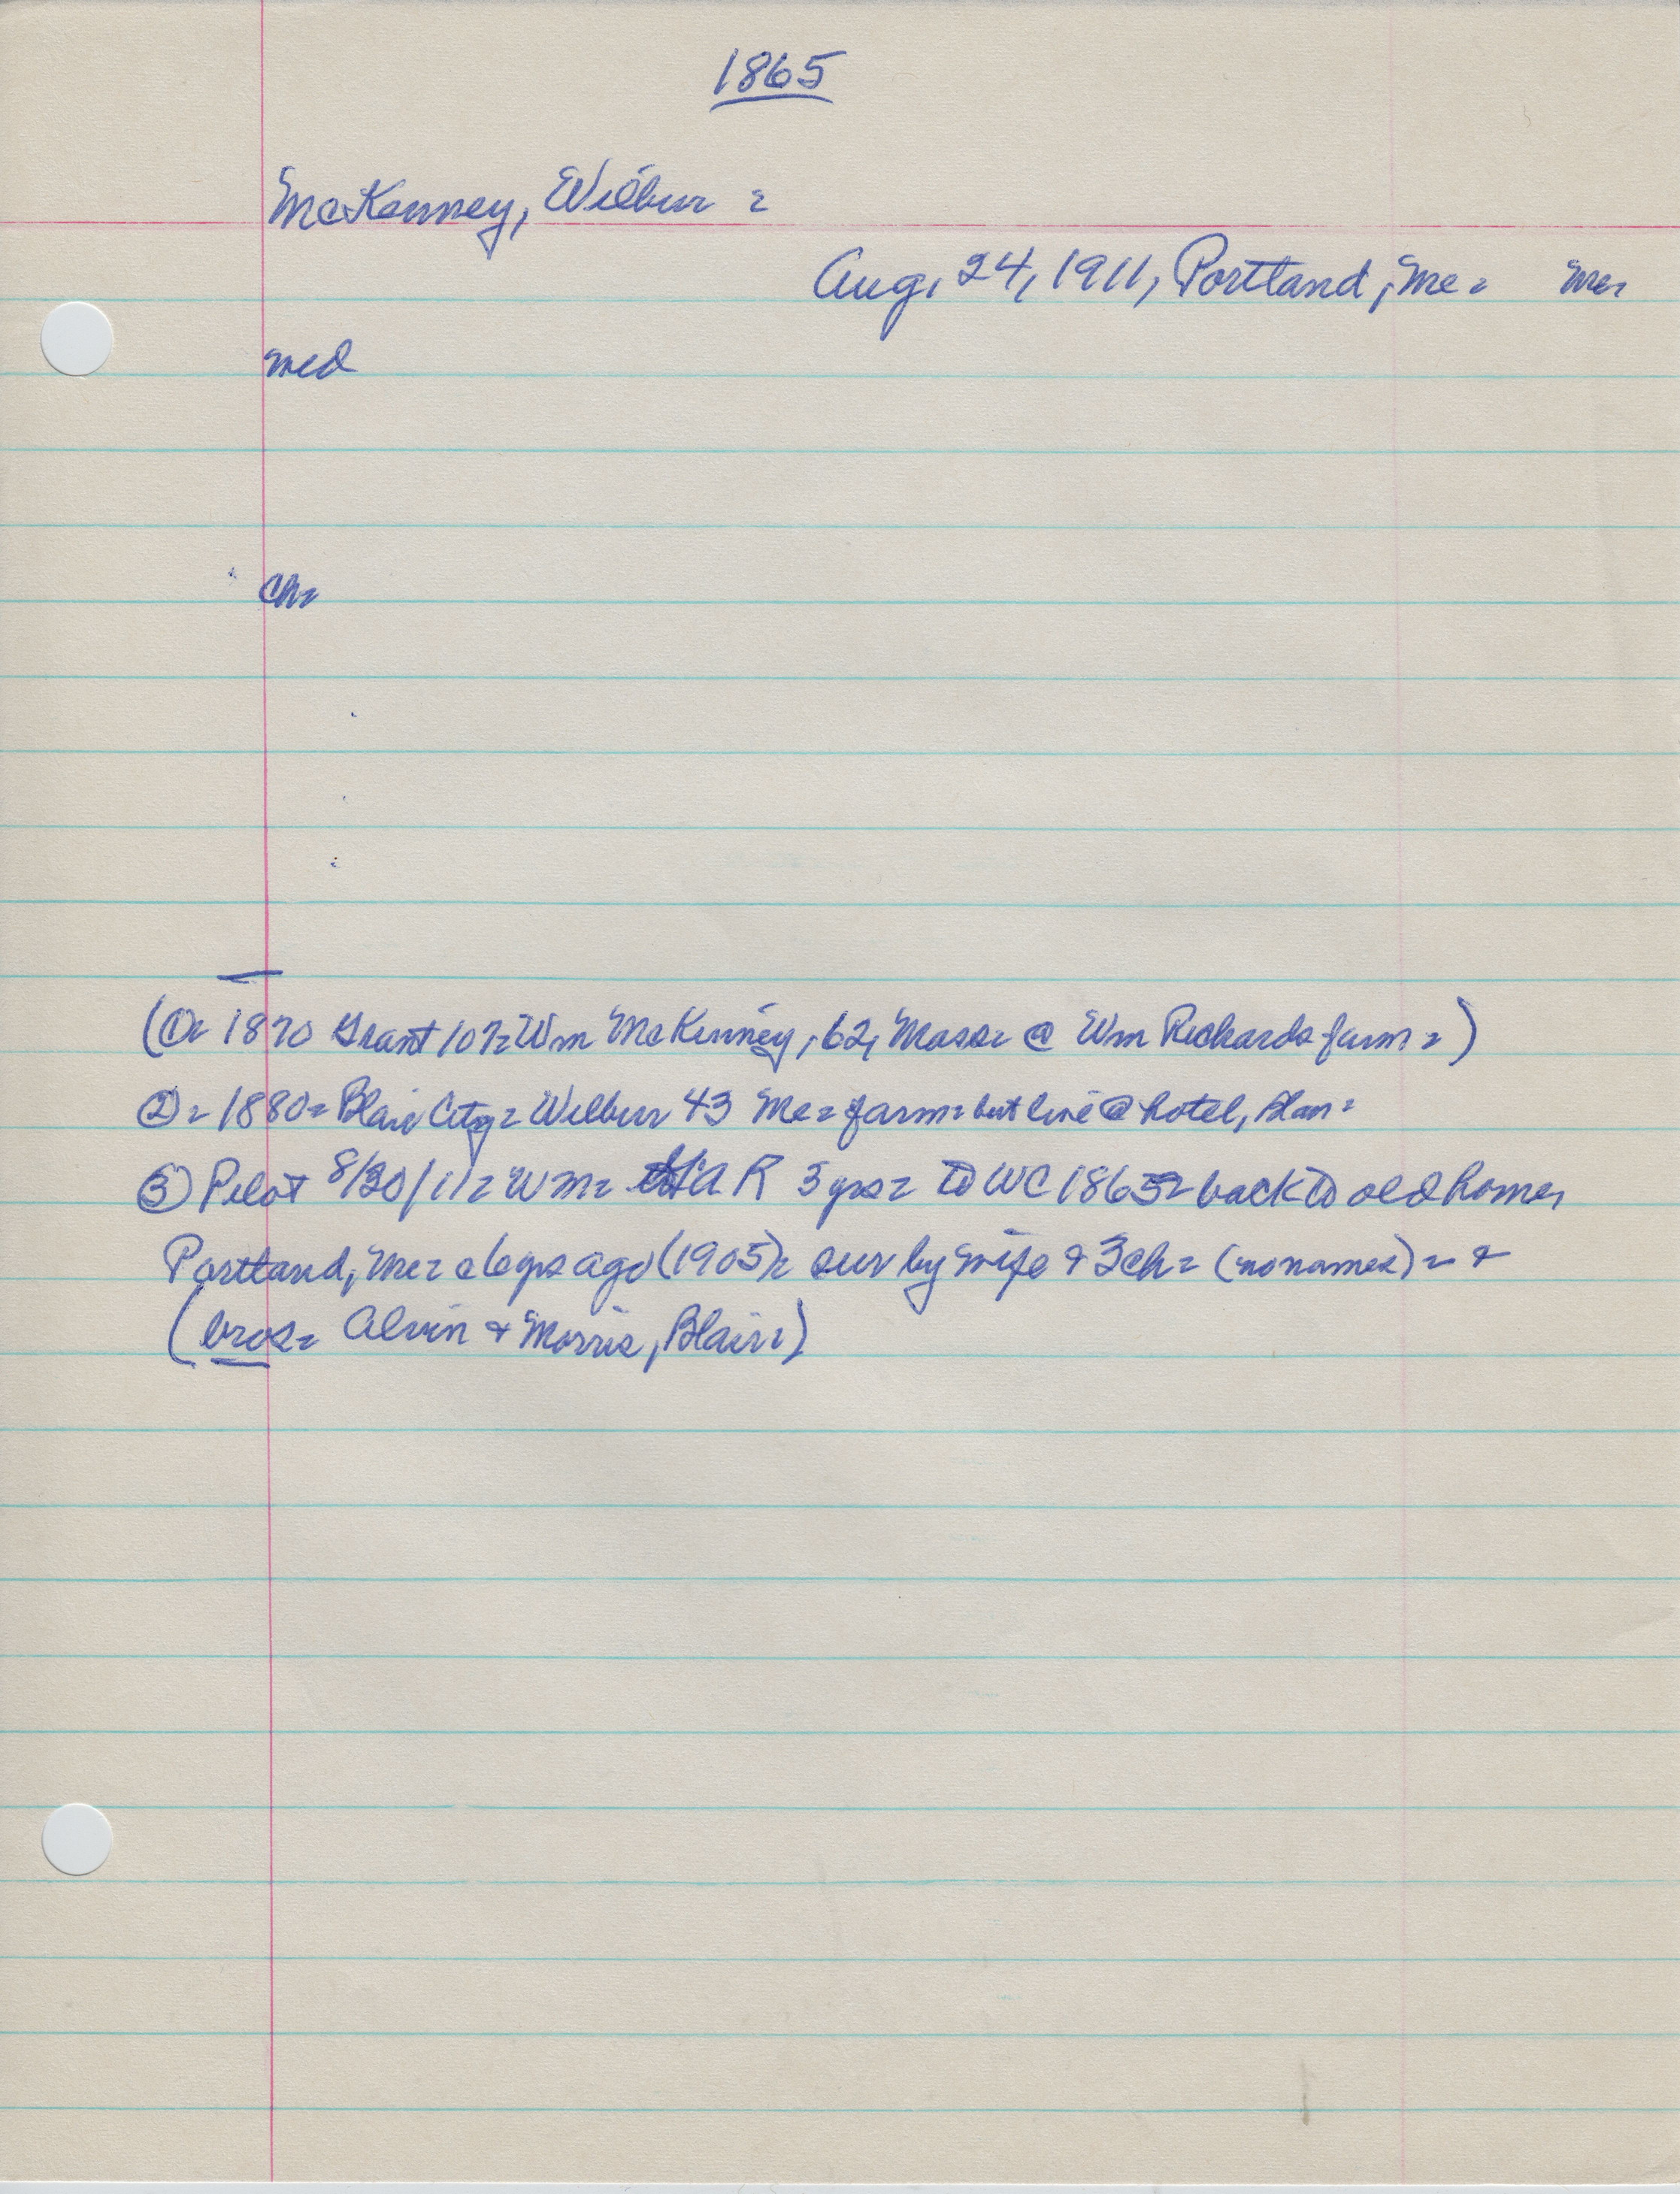 1865
McKenney, Wilbur =
Aug. 24, 1911, Portland, Me = Me.
med
Ch=
(①= 1870 Grant 107= Wm McKenney, 62, Mass= @ Wm Richards farm =)
②= 1880= Blair City= Wilbur 43 Me= farm= but live @ hotel, Blair=
③ Pilot 8/30/11= Wm= GAR 3 yrs= to WC 1865= back to old home,
Portland, Me= 6 yrs ago (1905)= sur by wife & 3 ch= (no names)= &
(bros= Alvin & Morris, Blair=)